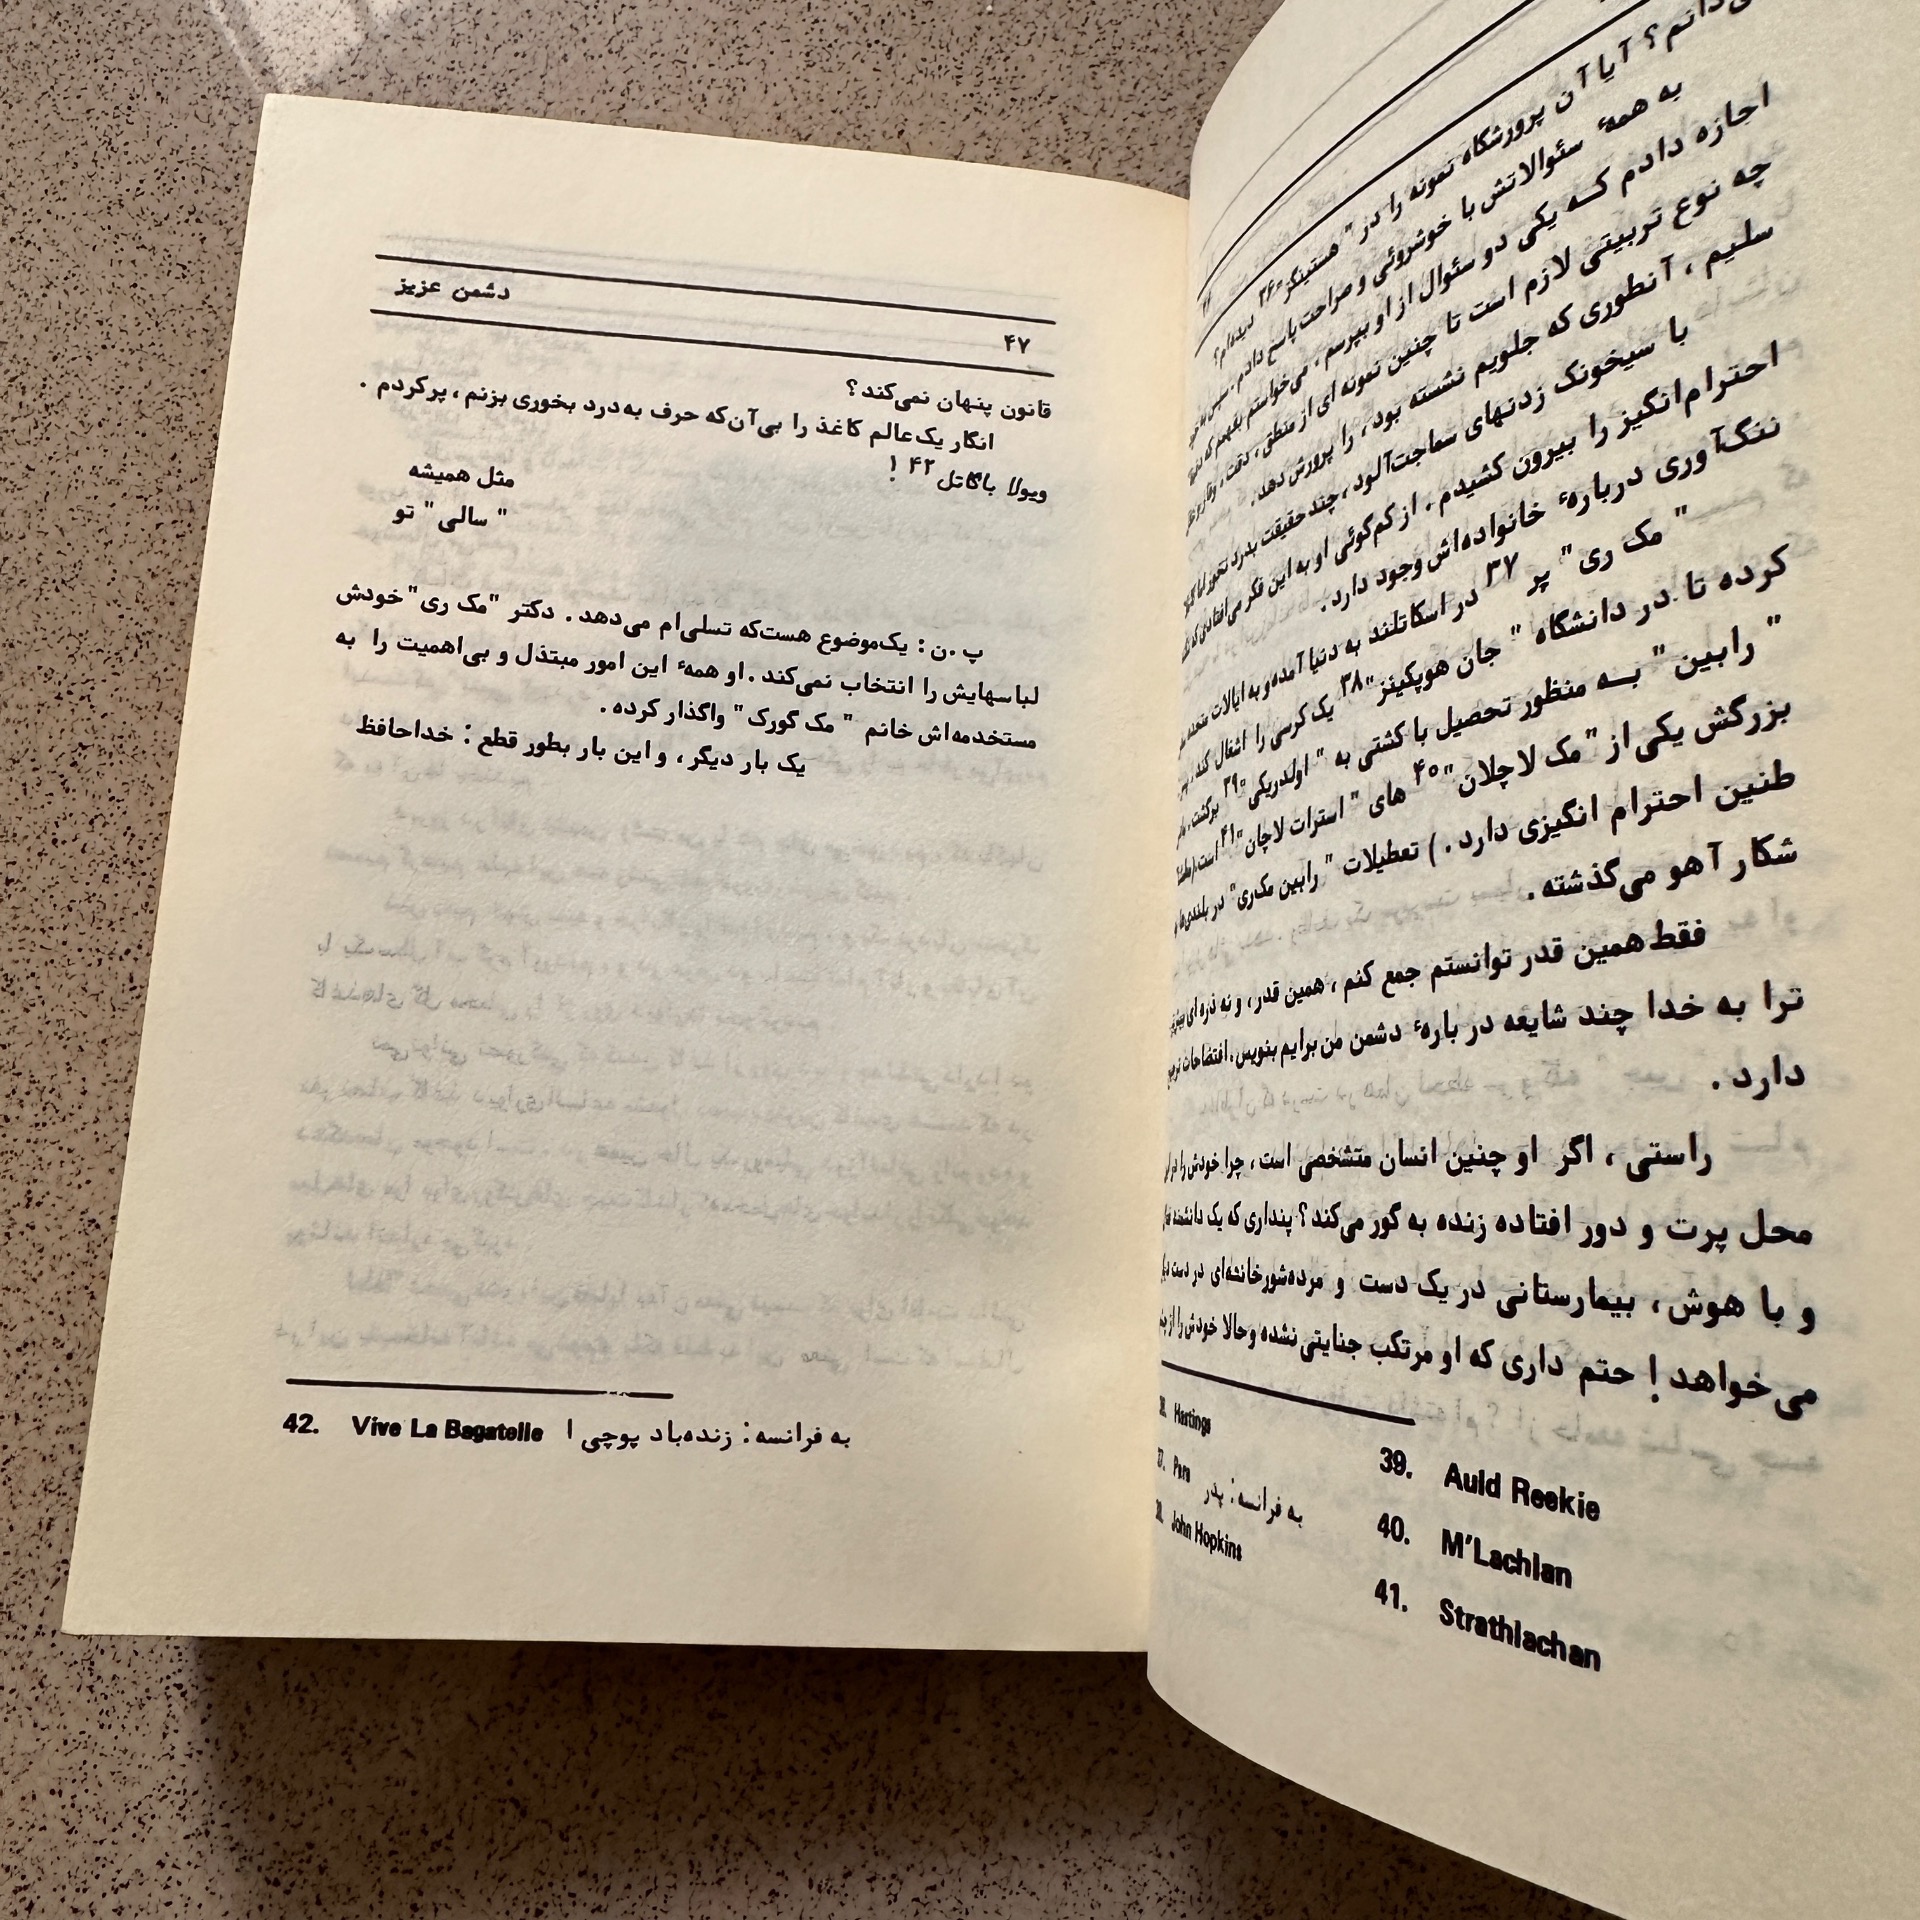 دانم؟ آیا آن پرورشگاه نمونه را در " هستینگز"۳۶ دیده‌ام؟
به همهٔ سئوالاتش با خوشروئی و صراحت پاسخ دادم. سپس
اجازه دادم کـه یکی دو سئوال از او بپرسم. می‌خواستم بفهمم که
چه نوع تربیتی لازم است تا چنین نمونه ای از منطق، دقت، وقار و
سلیم، آنطوری که جلویم نشسته بود، را پرورش دهد.
با سیخونک زدنهای سماجت‌آلود، چند حقیقت بدرد نخور اما
احترام‌انگیز را بیرون کشیدم. از کم‌گوئی او به این فکر می‌افتادی که
ننگ‌آوری دربارهٔ خانواده‌اش وجود دارد.
" مک ری" پر ۳۷ در اسکاتلند به دنیا آمده و به ایالات متحده
کرده تا در دانشگاه " جان هوپکینز"۳۸ یک کرسی را اشغال کند.
" رابین " بـه منظور تحصیل با کشتی به " اولدریکی"۳۹ برگشت.
بزرکش یکی از "مک لاچلان"۴۰ های " استرات لاچان"۴۱ است.
طنین احترام انگیزی دارد.) تعطیلات " رابین مک‌ری" در بلندی‌ها
شکار آهو می‌گذشته.
فقط همین قدر توانستم جمع کنم، همین قدر، و نه ذره ای
ترا به خدا چند شایعه در بارهٔ دشمن من برایم بنویس. افتضاحات
دارد.
راستی، اگر او چنین انسان متشخصی است، چرا خودش را در
محل پرت و دور افتاده زنده به گور می‌کند؟ پنداری که یک دانشمند
و با هوش، بیمارستانی در یک دست و مرده‌شورخانه‌ای در دست
می‌خواهد! حتم داری که او مرتکب جنایتی نشده و حالا خودش را از
Hastings
Pere به فرانسه: پدر
John Hopkins
39. Auld Reekie
40. M'Lachlan
41. Strathlachan
دشمن عزیز
۴۷
قانون پنهان نمی‌کند؟
انگار یک‌عالم کاغذ را بی‌آن‌که حرف به‌درد بخوری بزنم، پرکردم.
ویولا باگاتل ۴۲ !
مثل همیشه
" سالی" تو
پ.ن: یک‌موضوع هست‌که تسلی‌ام می‌دهد. دکتر "مک ری" خودش
لباسهایش را انتخاب نمی‌کند. او همهٔ این امور مبتذل و بی‌اهمیت را به
مستخدمه‌اش خانم " مک گورک" واگذار کرده.
یک بار دیگر، و این بار بطور قطع: خداحافظ
42. Vive La Bagatelle به فرانسه: زنده‌باد پوچی !